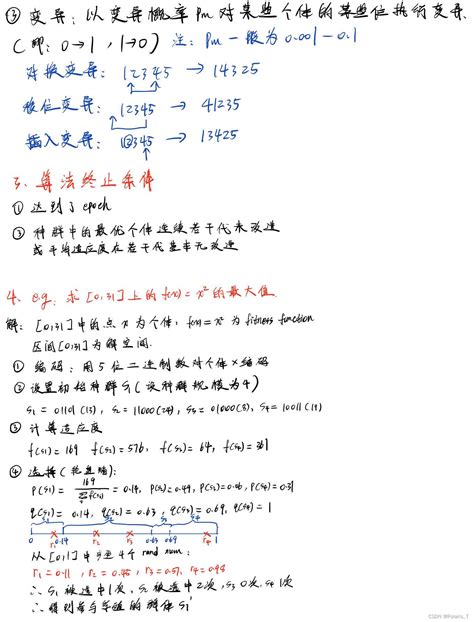 ③ 变异：以变异概率Pm对某些个体的某些位执行变异.
（即：0→1，1→0） 注：Pm一般为0.001-0.1
对换变异：12345 → 14325
移位变异：12345 → 41235
插入变异：12345 → 13425
3. 算法终止条件
① 达到了epoch
② 种群中的最优个体连续若干代未改进
或平均适应度在若干代基本无改进
4. e.g. 求[0,31]上的f(x)=x²的最大值.
解：[0,31]中的点x为个体，f(x)=x²为fitness function
区间[0,31]为解空间.
① 编码：用5位二进制数对个体x编码
② 设置初始种群S1（设种群规模为4）
S1=01101(13), S2=11000(24), S3=01000(8), S4=10011(19)
③ 计算适应度
f(S1)=169 f(S2)=576, f(S3)=64, f(S4)=361
④ 选择（轮盘赌）：
P(S1)=169/∑f(Si)=0.14, P(S2)=0.49, P(S3)=0.06, P(S4)=0.31
q(S1)=0.14, q(S2)=0.63, q(S3)=0.69, q(S4)=1
S1 S2 S3 S4
0 r1 0.14 r2 r3 0.63 0.69 r4 1
从[0,1]中产生4个rand num：
r1=0.11, r2=0.45, r3=0.57, r4=0.98
∴ S1被选中1次, S2被选中2次, S3 0次, S4 1次
∴ 得到 的群体S1'
CSDN @Fouriu_T